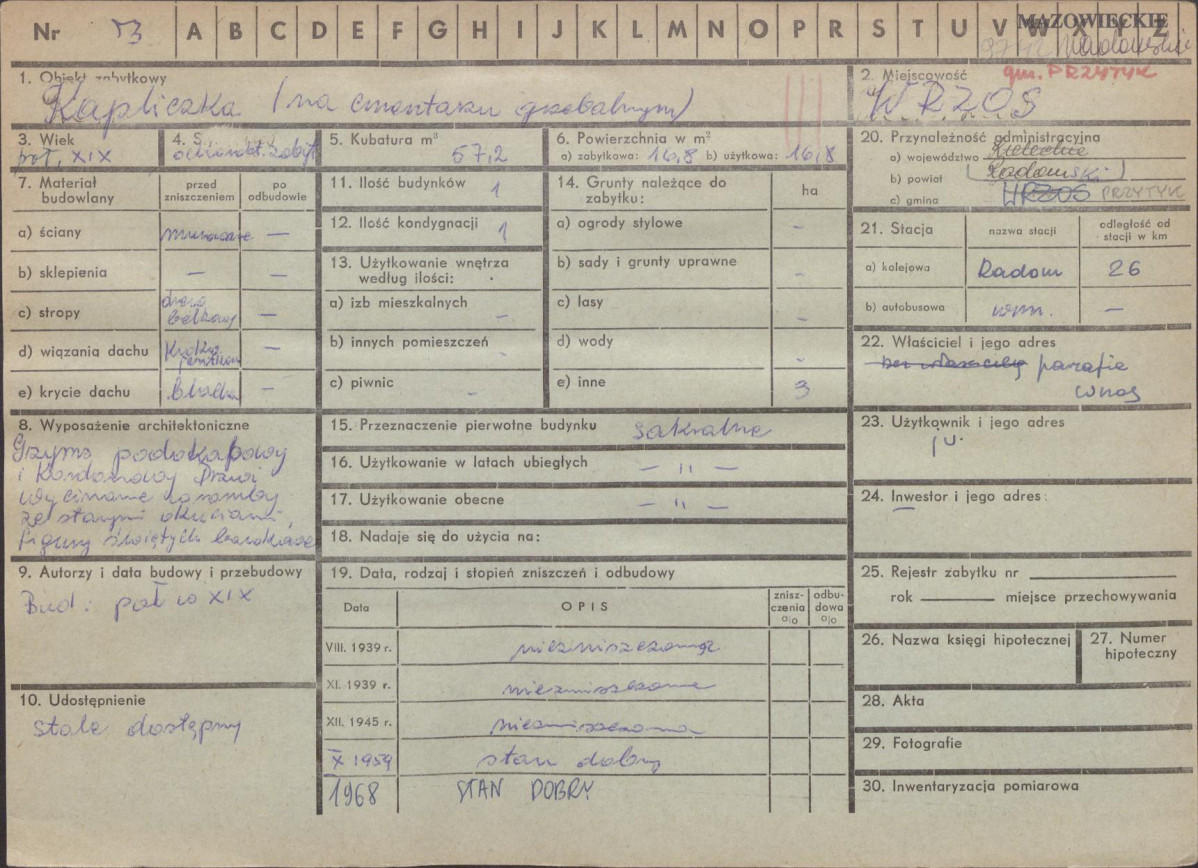 Nr 53 A B C D E F G H I J K L M N O P R S T U V W X Y Z
MAZOWIECKIE
1. Obiekt zabytkowy
Kapliczka (na cmentarzu grzebalnym)
2. Miejscowość
gm. PRZYTYK
WRZOS
3. Wiek
poł. XIX
4. S
5. Kubatura m³
57,2
6. Powierzchnia w m²
a) zabytkowa: 16,8 b) użytkowa: 16,8
20. Przynależność administracyjna
a) województwo Kieleckie
b) powiat Radomski
c) gmina WRZOS PRZYTYK
7. Materiał budowlany
przed zniszczeniem
po odbudowie
a) ściany murowane —
b) sklepienia — —
c) stropy belkowy —
d) wiązania dachu —
e) krycie dachu blacha —
11. Ilość budynków 1
12. Ilość kondygnacji 1
13. Użytkowanie wnętrza według ilości:
a) izb mieszkalnych -
b) innych pomieszczeń -
c) piwnic -
14. Grunty należące do zabytku:
ha
a) ogrody stylowe -
b) sady i grunty uprawne -
c) lasy
d) wody -
e) inne 3
21. Stacja
nazwa stacji
odległość od stacji w km
a) kolejowa Radom 26
b) autobusowa —
22. Właściciel i jego adres
parafia
8. Wyposażenie architektoniczne
Gzyms podokapowy
i kordonowy Drzwi
wycinane w romby
ze starymi okuciami,
figury świętych barokowe
15. Przeznaczenie pierwotne budynku sakralne
16. Użytkowanie w latach ubiegłych — " —
17. Użytkowanie obecne — " —
18. Nadaje się do użycia na:
23. Użytkownik i jego adres
24. Inwestor i jego adres:
—
9. Autorzy i data budowy i przebudowy
Bud: poł w XIX
19. Data, rodzaj i stopień zniszczeń i odbudowy
Data
OPIS
znisz-czenia %
odbu-dowa %
VIII. 1939 r. niezniszczona
XI. 1939 r. niezniszczona
XII. 1945 r. niezniszczona
X 1959 stan dobry
1968 STAN DOBRY
10. Udostępnienie
stale dostępny
25. Rejestr zabytku nr
rok miejsce przechowywania
26. Nazwa księgi hipotecznej
27. Numer hipoteczny
28. Akta
29. Fotografie
30. Inwentaryzacja pomiarowa